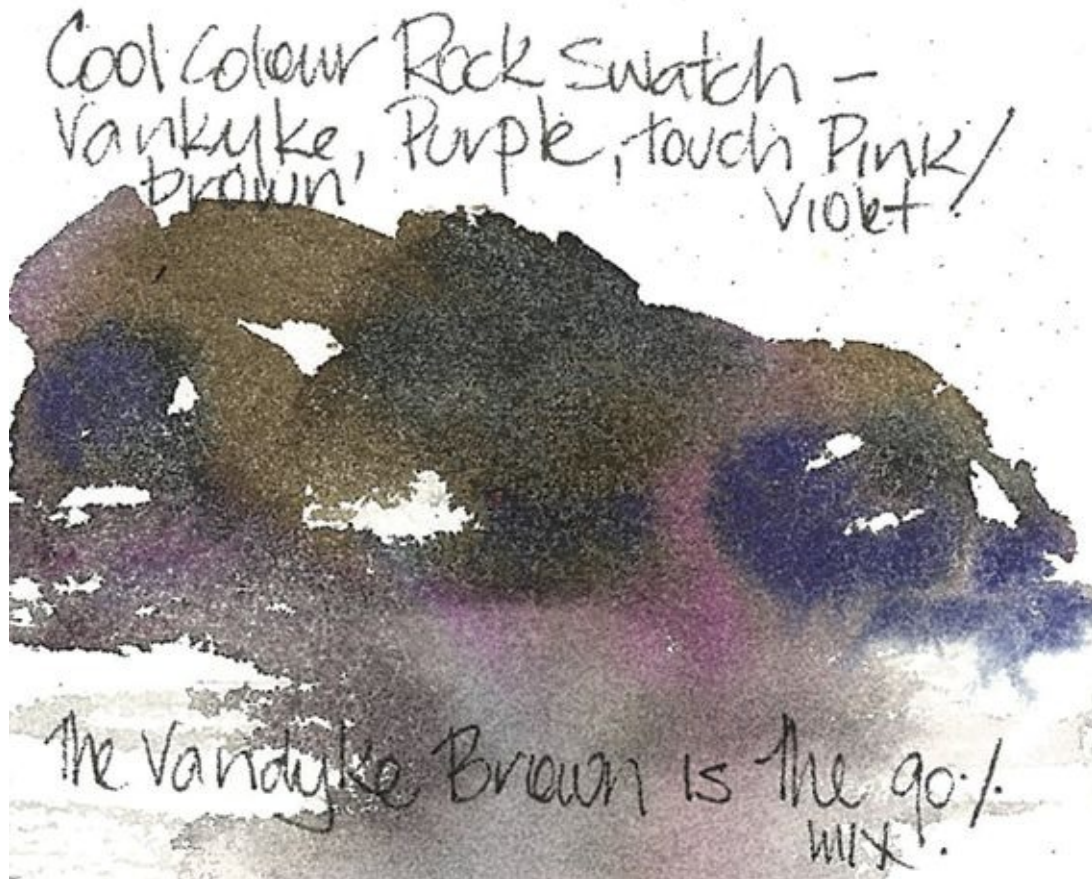 Cool Colour Rock Swatch –
Vankyke, Purple, touch Pink/
brown Violet.
The Vandyke Brown is the 90%
mix.